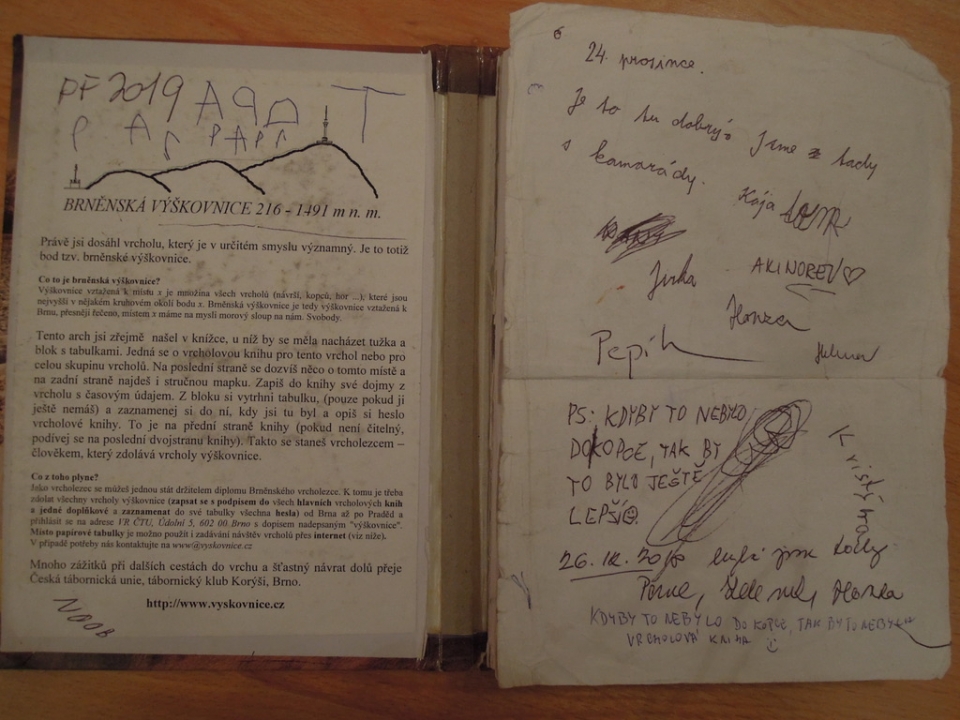 PF 2019
BRNĚNSKÁ VÝŠKOVNICE 216 - 1491 m n. m.
Právě jsi dosáhl vrcholu, který je v určitém smyslu významný. Je to totiž
bod tzv. brněnské výškovnice.
Co to je brněnská výškovnice?
Výškovnice vztažená k místu x je množina všech vrcholů (návrší, kopců, hor ...), které jsou
nejvyšší v nějakém kruhovém okolí bodu x. Brněnská výškovnice je tedy výškovnice vztažená k
Brnu, přesněji řečeno, místem x máme na mysli morový sloup na nám. Svobody.
Tento arch jsi zřejmě našel v knížce, u níž by se měla nacházet tužka a
blok s tabulkami. Jedná se o vrcholovou knihu pro tento vrchol nebo pro
celou skupinu vrcholů. Na poslední straně se dozvíš něco o tomto místě a
na zadní straně najdeš i stručnou mapku. Zapiš do knihy své dojmy z
vrcholu s časovým údajem. Z bloku si vytrhni tabulku, (pouze pokud ji
ještě nemáš) a zaznamenej si do ní, kdy jsi tu byl a opiš si heslo
vrcholové knihy. To je na přední straně knihy (pokud není čitelný,
podívej se na poslední dvojstranu knihy). Takto se staneš vrcholezcem –
člověkem, který zdolává vrcholy výškovnice.
Co z toho plyne?
Jako vrcholezec se můžeš jednou stát držitelem diplomu Brněnského vrcholezce. K tomu je třeba
zdolat všechny vrcholy výškovnice (zapsat se s podpisem do všech hlavních vrcholových knih
a jedné doplňkové a zaznamenat do své tabulky všechna hesla) od Brna až po Praděd a
přihlásit se na adrese VR ČTU, Údolní 5, 602 00 Brno s dopisem nadepsaným "výškovnice".
Místo papírové tabulky je možno použít i zadávání návštěv vrcholů přes internet (viz níže).
V případě potřeby nás kontaktujte na www@vyskovnice.cz
Mnoho zážitků při dalších cestách do vrchu a šťastný návrat dolů přeje
Česká tábornická unie, tábornický klub Korýši, Brno.
http://www.vyskovnice.cz
NOOB
6
24. prosince.
Je to tu dobrý: Jsme tady
s kamarády.
Kája
Jirka
AKINOREV♡
Honza
Pepík
PS: KDYBY TO NEBYLO
DOKOPCE, TAK BY
TO BYLO JEŠTĚ
LEPŠÍ☺
Kristýna
26.12. byli jsme
Honza
KDYBY TO NEBYLO DO KOPCE, TAK BY TO NEBYLA
VRCHOLOVÁ KNIHA ☺